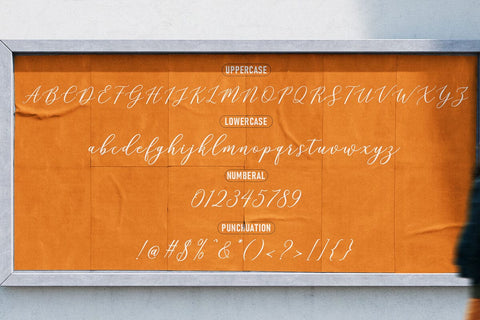 UPPERCASE
ABCDEFGHIJKLMNOPQRSTUVWXYZ
LOWERCASE
abcdefghijklmnopqrstuvwxyz
NUMBERAL
0123456789
PUNCHUATION
!@#$%^&*()<?>[]{}